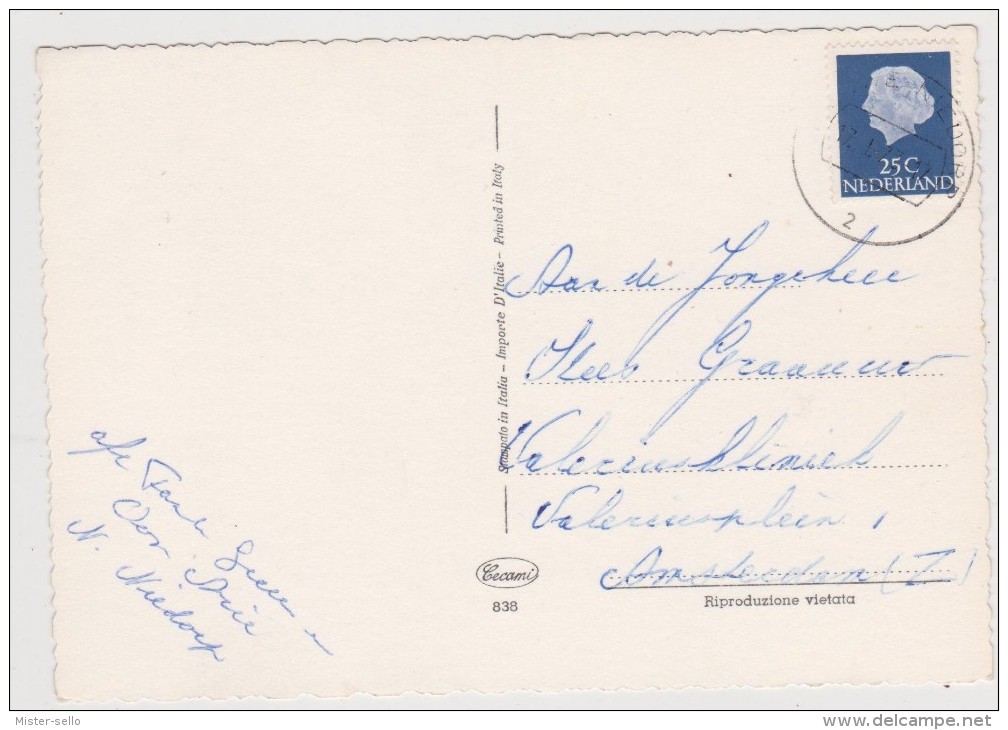 25 C
NEDERLAND
2
Stampato in Italia - Importe D'Italie - Printed in Italy
Aan de Jongeheer
Kees Graauw
Valeriuskliniek
Valeriusplein,
Amsterdam (Z)
afz
N. Niedorp
Cecami
838
Riproduzione vietata
Mister-sello
www.delcampe.net